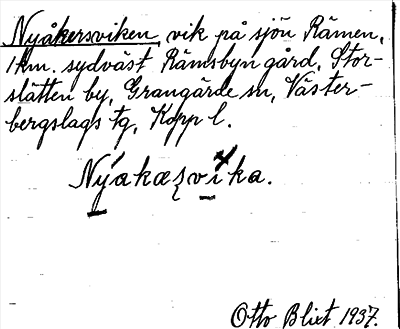 Nyåkersviken, vik på sjön Rämen,
1 km. sydväst Rämsbyn gård, Stor-
slätten by, Grangärde sn, Väster-
bergslags tg, Kopp l.
Nýakæʒvika.
Otto Blixt 1937.